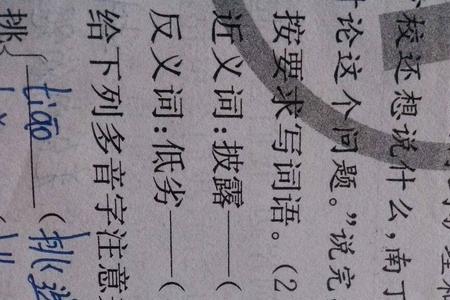 校还想说什么,南丁
讨论这个问题。”说完
按要求写词语。(2
近义词:披露____(
反义词:低劣____(
给下列多音字注意
挑{tiāo____(挑选